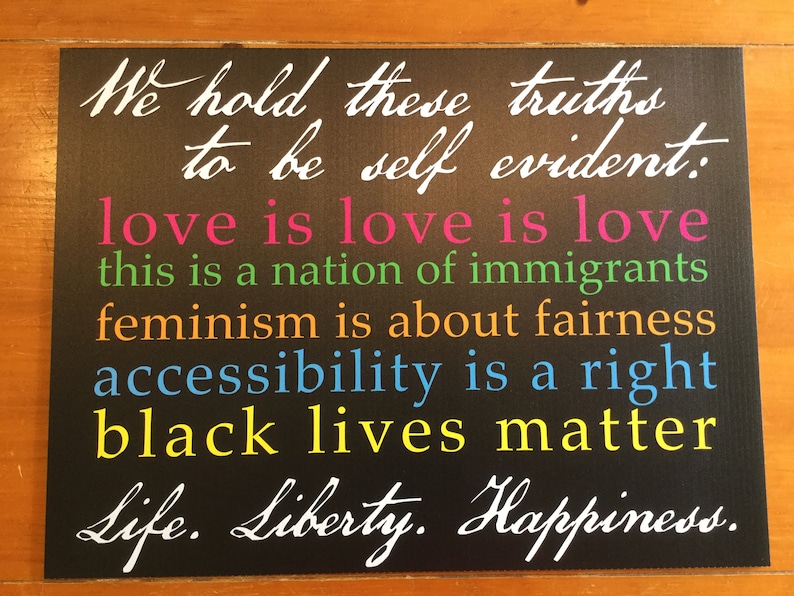 We hold these truths
to be self evident:
love is love is love
this is a nation of immigrants
feminism is about fairness
accessibility is a right
black lives matter
Life. Liberty. Happiness.